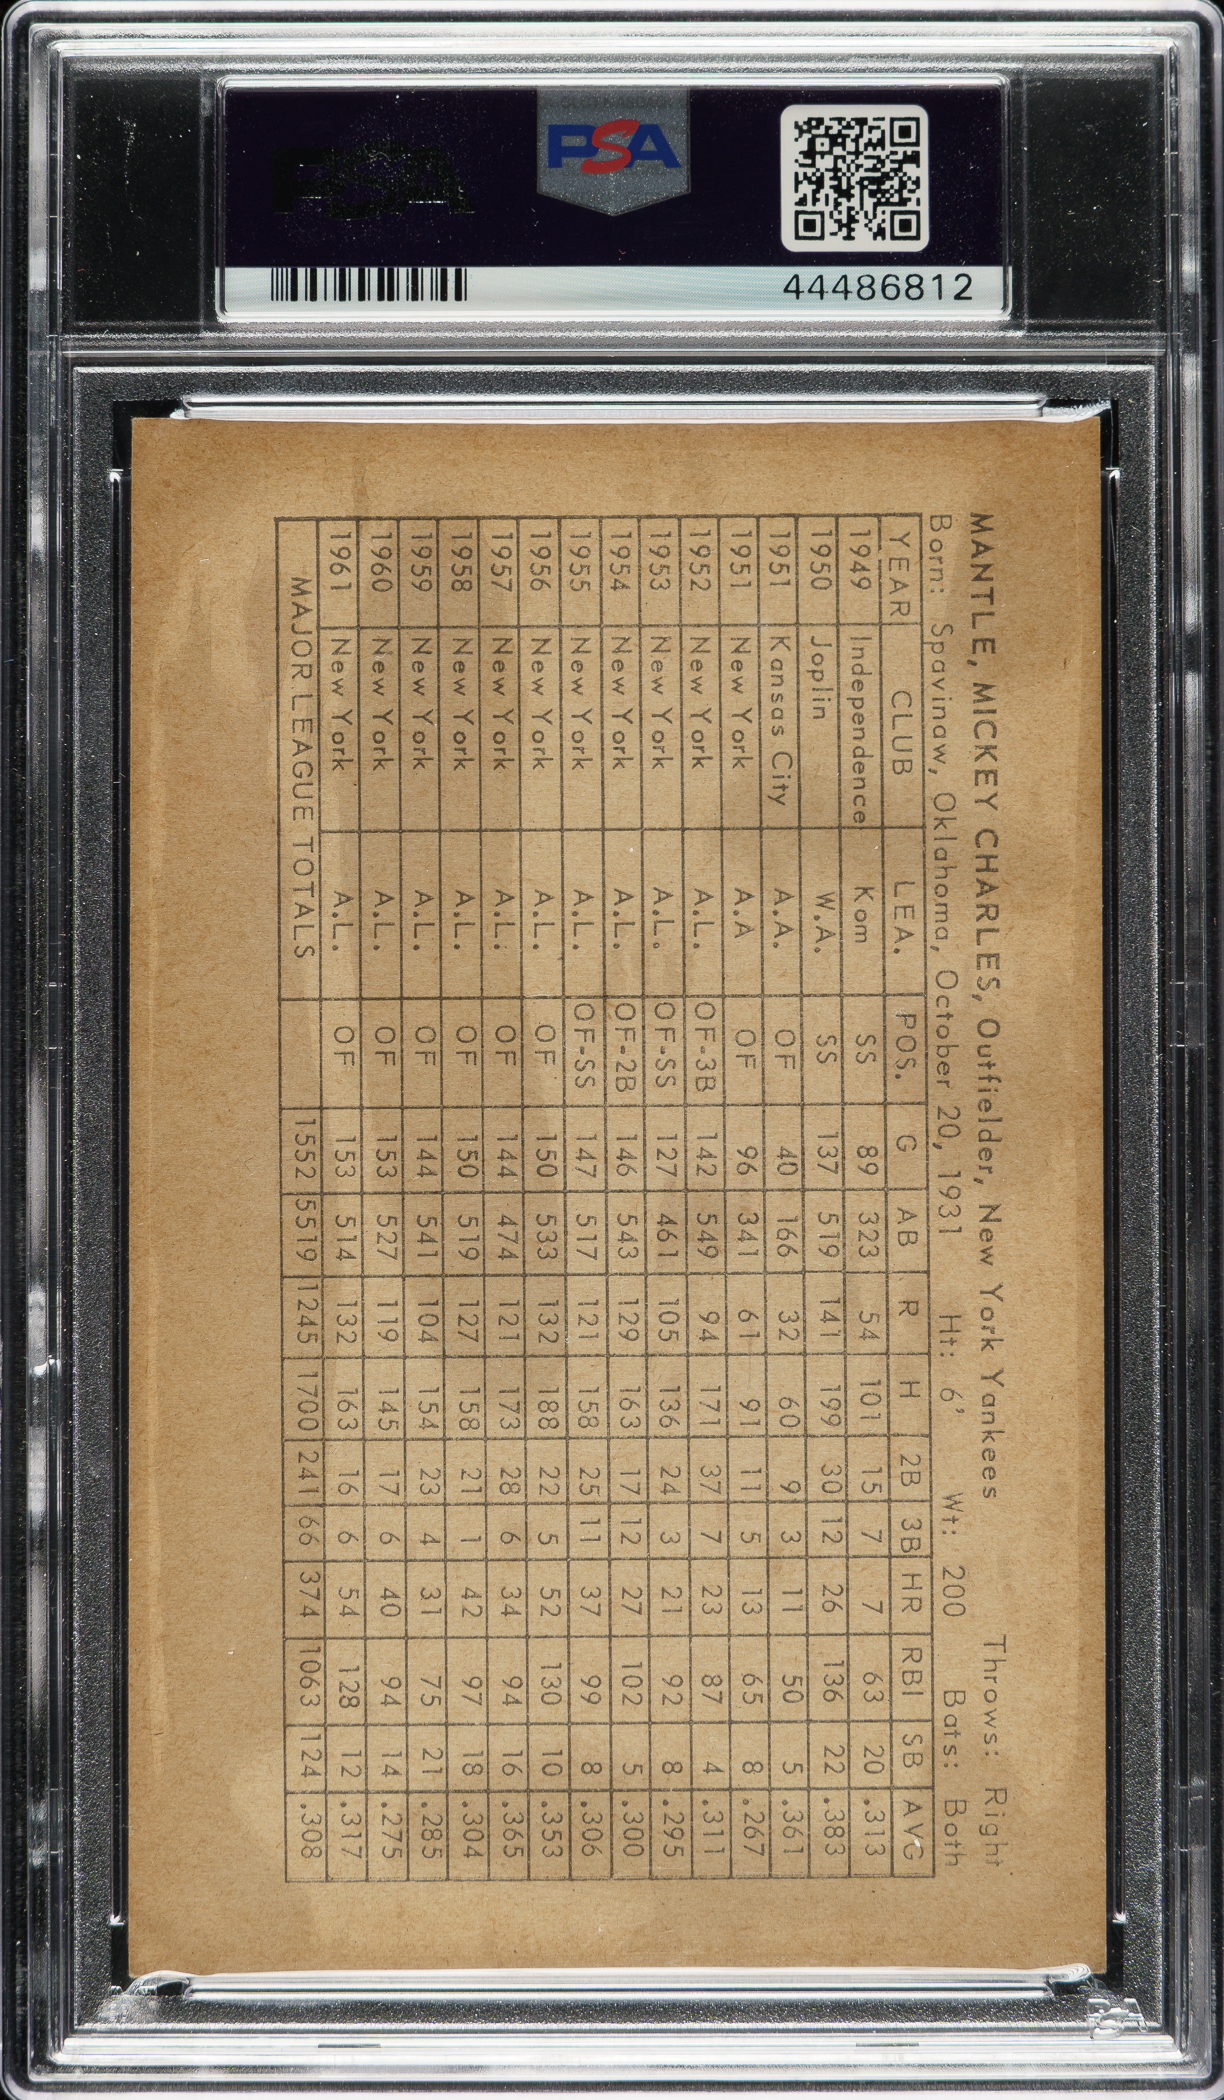 PSA
PSA
44486812
MANTLE, MICKEY CHARLES, Outfielder, New York Yankees Throws: Right
Born: Spavinaw, Oklahoma, October 20, 1931 Ht: 6' Wt: 200 Bats: Both
YEAR CLUB LEA. POS. G AB R H 2B 3B HR RBI SB AVG
1949 Independence Kom SS 89 323 54 101 15 7 7 63 20 .313
1950 Joplin W.A. SS 137 519 141 199 30 12 26 136 22 .383
1951 Kansas City A.A. OF 40 166 32 60 9 3 11 50 5 .361
1951 New York A.A OF 96 341 61 91 11 5 13 65 8 .267
1952 New York A.L. OF-3B 142 549 94 171 37 7 23 87 4 .311
1953 New York A.L. OF-SS 127 461 105 136 24 3 21 92 8 .295
1954 New York A.L. OF-2B 146 543 129 163 17 12 27 102 5 .300
1955 New York A.L. OF-SS 147 517 121 158 25 11 37 99 8 .306
1956 New York A.L. OF 150 533 132 188 22 5 52 130 10 .353
1957 New York A.L. OF 144 474 121 173 28 6 34 94 16 .365
1958 New York A.L. OF 150 519 127 158 21 1 42 97 18 .304
1959 New York A.L. OF 144 541 104 154 23 4 31 75 21 .285
1960 New York A.L. OF 153 527 119 145 17 6 40 94 14 .275
1961 New York A.L. OF 153 514 132 163 16 6 54 128 12 .317
MAJOR LEAGUE TOTALS 1552 5519 1245 1700 241 66 374 1063 124 .308
PSA